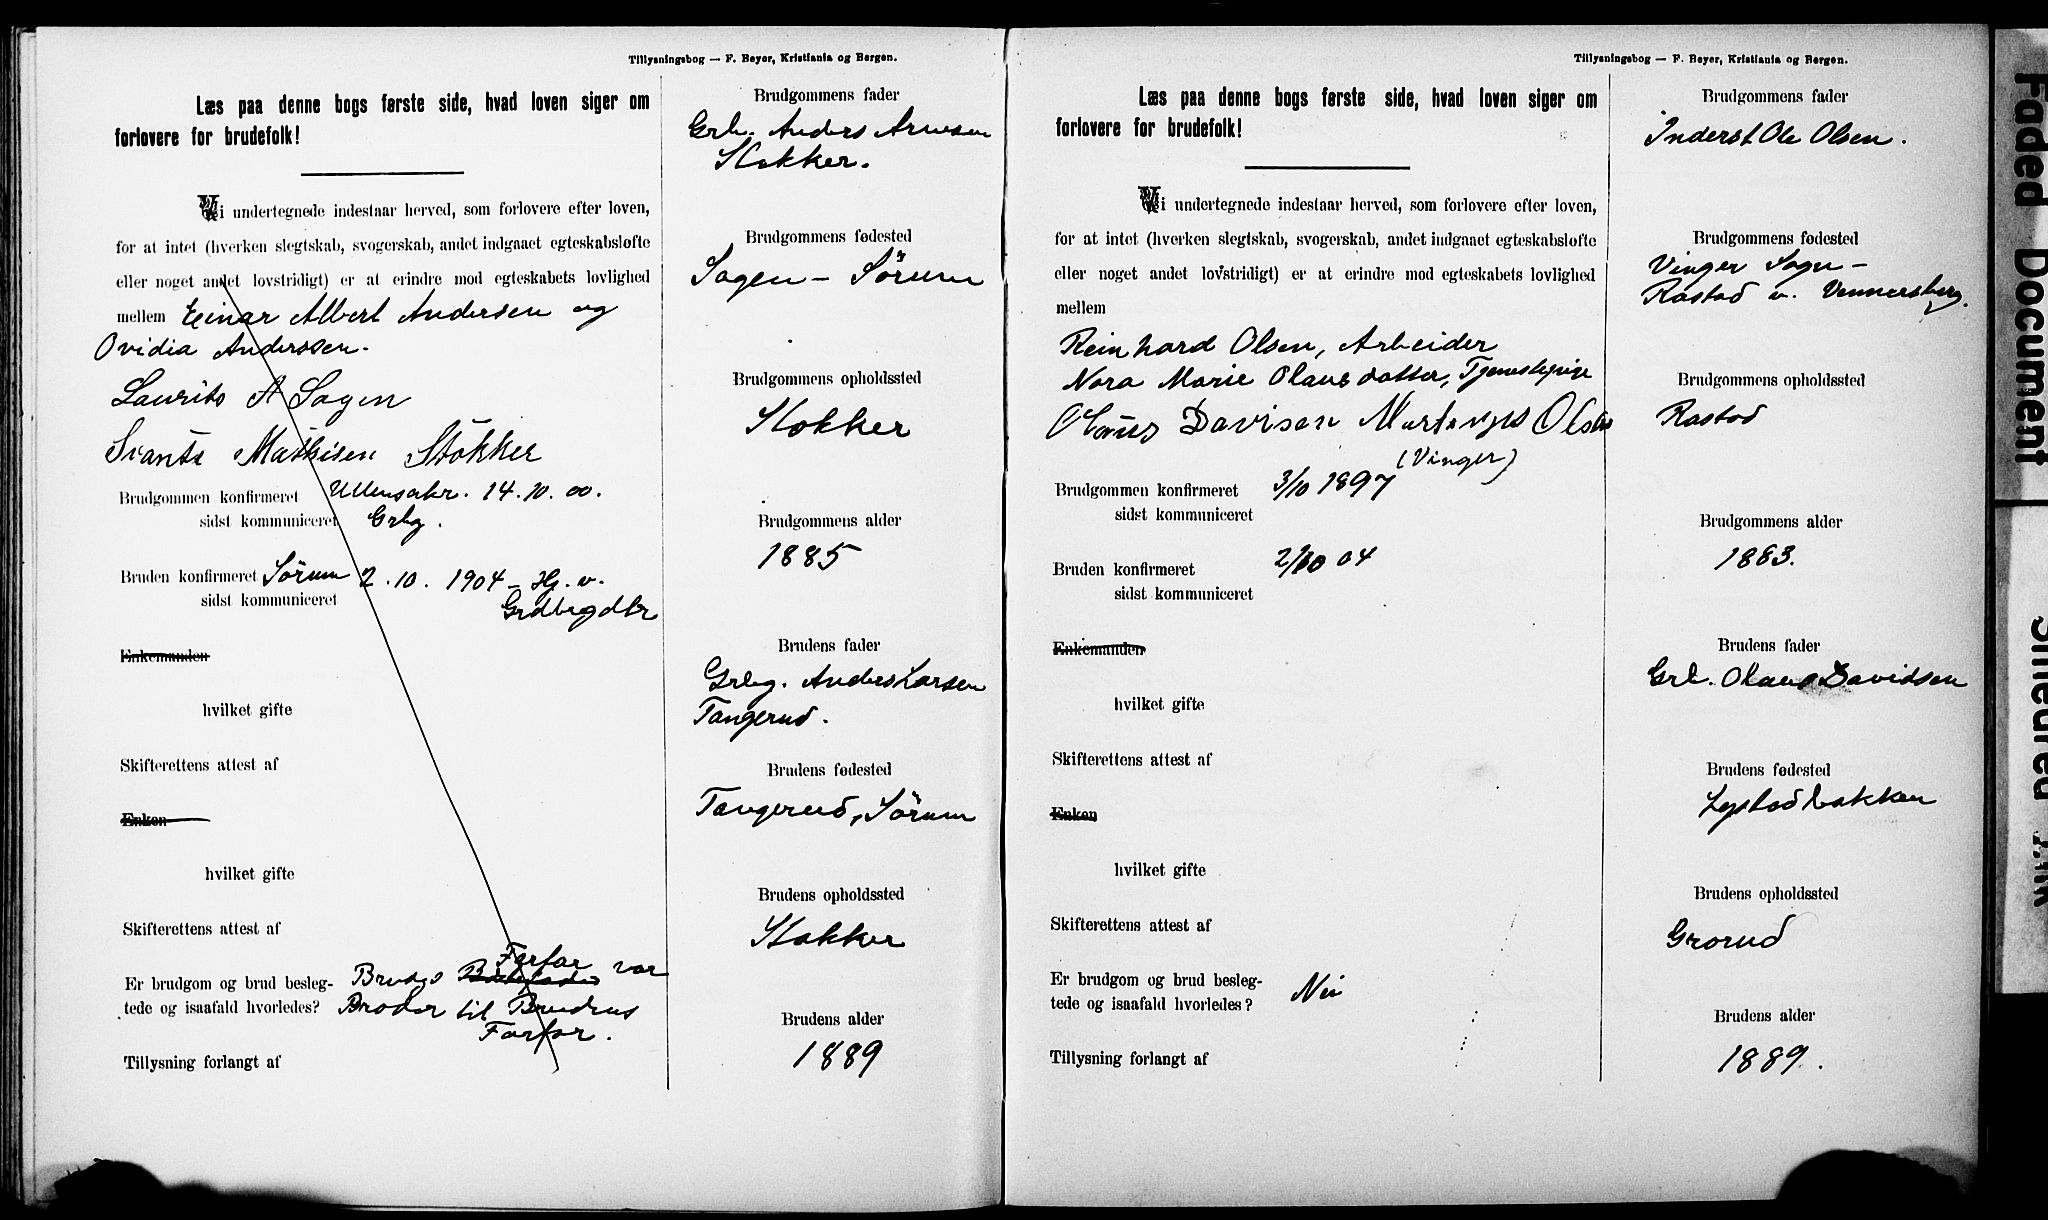 Tillysningsbog — F. Beyer, Kristiania og Bergen.
Læs paa denne bogs første side, hvad loven siger om
forlovere for brudefolk!
Vi undertegnede indestaar herved, som forlovere efter loven,
for at intet (hverken slegtskab, svogerskab, andet indgaaet egteskabsløfte
eller noget andet lovstridigt) er at erindre mod egteskabets lovlighed
mellem Einar Albert Andersen og
Ovidia Anderssen.
Laurits A Sagen
Svante Mathisen Stokker
Brudgommen konfirmeret Ullensaker. 14.10.00.
sidst kommuniceret Grbg.
Bruden konfirmeret Sørum 2.10.1904 - Hj. v.
sidst kommuniceret Grdbrgdtr
Enkemanden
hvilket gifte
Skifterettens attest af
Enken
hvilket gifte
Skifterettens attest af
Farfar
Er brudgom og brud besleg- Brudgs var
tede og isaafald hvorledes? Broder til Brudens
Farfar.
Tillysning forlangt af
Brudgommens fader
Grb. Anders Arnesen
Stokker.
Brudgommens fødested
Sagen - Sørum
Brudgommens opholdssted
Stokker
Brudgommens alder
1885
Brudens fader
Grbg. Anders Larsen
Tangerud.
Brudens fødested
Tangerud, Sørum
Brudens opholdssted
Stokker
Brudens alder
1889
Tillysningsbog — F. Beyer, Kristiania og Bergen.
Læs paa denne bogs første side, hvad loven siger om
forlovere for brudefolk!
Vi undertegnede indestaar herved, som forlovere efter loven,
for at intet (hverken slegtskab, svogerskab, andet indgaaet egteskabsløfte
eller noget andet lovstridigt) er at erindre mod egteskabets lovlighed
mellem
Reinhard Olsen, Arbeider
Nora Marie Olausdatter, Tjenestepige
Olaus Davisen Olsen
(Vinger)
Brudgommen konfirmeret 3/10 1897
sidst kommuniceret
Bruden konfirmeret 2/10 04
sidst kommuniceret
Enkemanden
hvilket gifte
Skifterettens attest af
Enken
hvilket gifte
Skifterettens attest af
Er brudgom og brud besleg-
tede og isaafald hvorledes? Nei
Tillysning forlangt af
Brudgommens fader
Inderst Ole Olsen.
Brudgommens fødested
Vinger Sogn -
Rastad v. Vennersberg.
Brudgommens opholdssted
Rastad
Brudgommens alder
1883.
Brudens fader
Grb. Olaus Davidsen
Brudens fødested
Lystadbakken
Brudens opholdssted
Grorud
Brudens alder
1889.
Faded Document
Smeared Ink